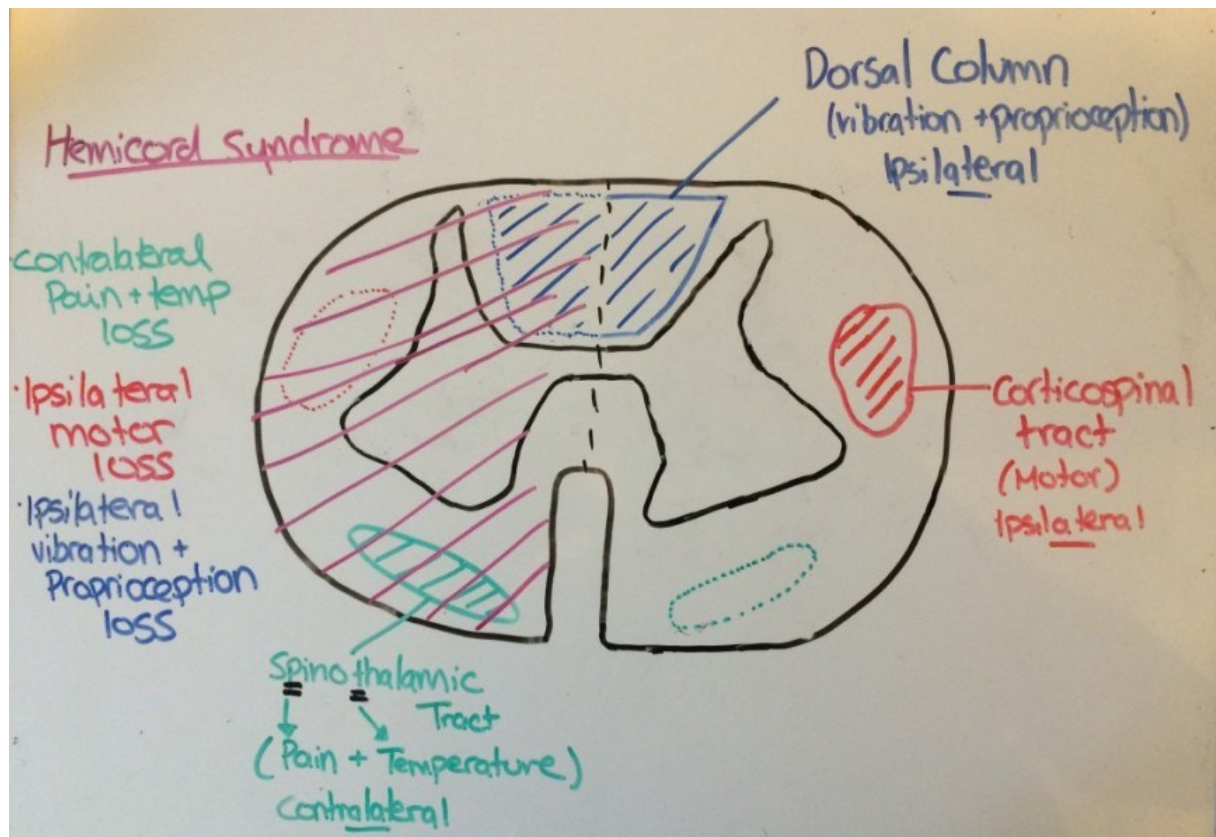 Hemicord Syndrome
Dorsal Column
(vibration + proprioception)
Ipsilateral
·contralateral
Pain + temp
loss
·Ipsilateral
motor
loss
·Ipsilateral
vibration +
Proprioception
loss
Corticospinal
tract
(Motor)
Ipsilateral
Spinothalamic
Tract
(Pain + Temperature)
Contralateral